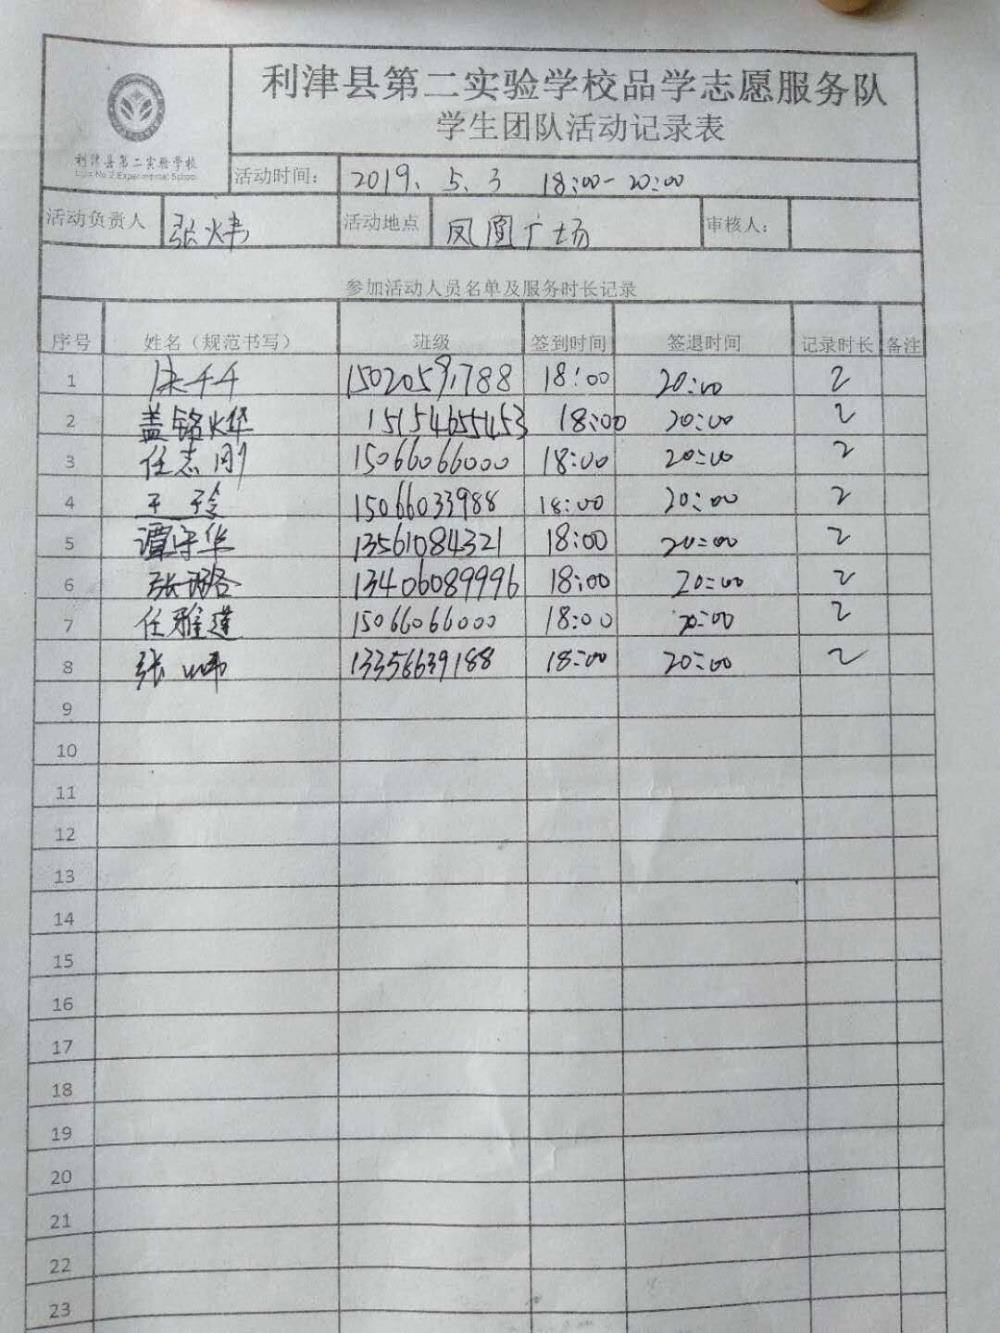 利津县第二实验学校品学志愿服务队
学生团队活动记录表
利津县第二实验学校
Lijin No.2 Experimental School
活动时间： 2019. 5. 3 18:00-20:00
活动负责人 张炜 活动地点 凤凰广场 审核人：
参加活动人员名单及服务时长记录
序号 姓名（规范书写） 班级 签到时间 签退时间 记录时长 备注
1 千千 18:00 20:00 2
2 盖铭烨 18:00 20:00 2
3 任志刚 15066066000 18:00 20:00 2
4 王玲 15066033988 18:00 20:00 2
5 谭守华 13561084321 18:00 20:00 2
6 张璐 13406089996 18:00 20:00 2
7 任雅莲 15066066000 18:00 20:00 2
8 张 13356639188 18:00 20:00 2
9
10
11
12
13
14
15
16
17
18
19
20
21
22
23